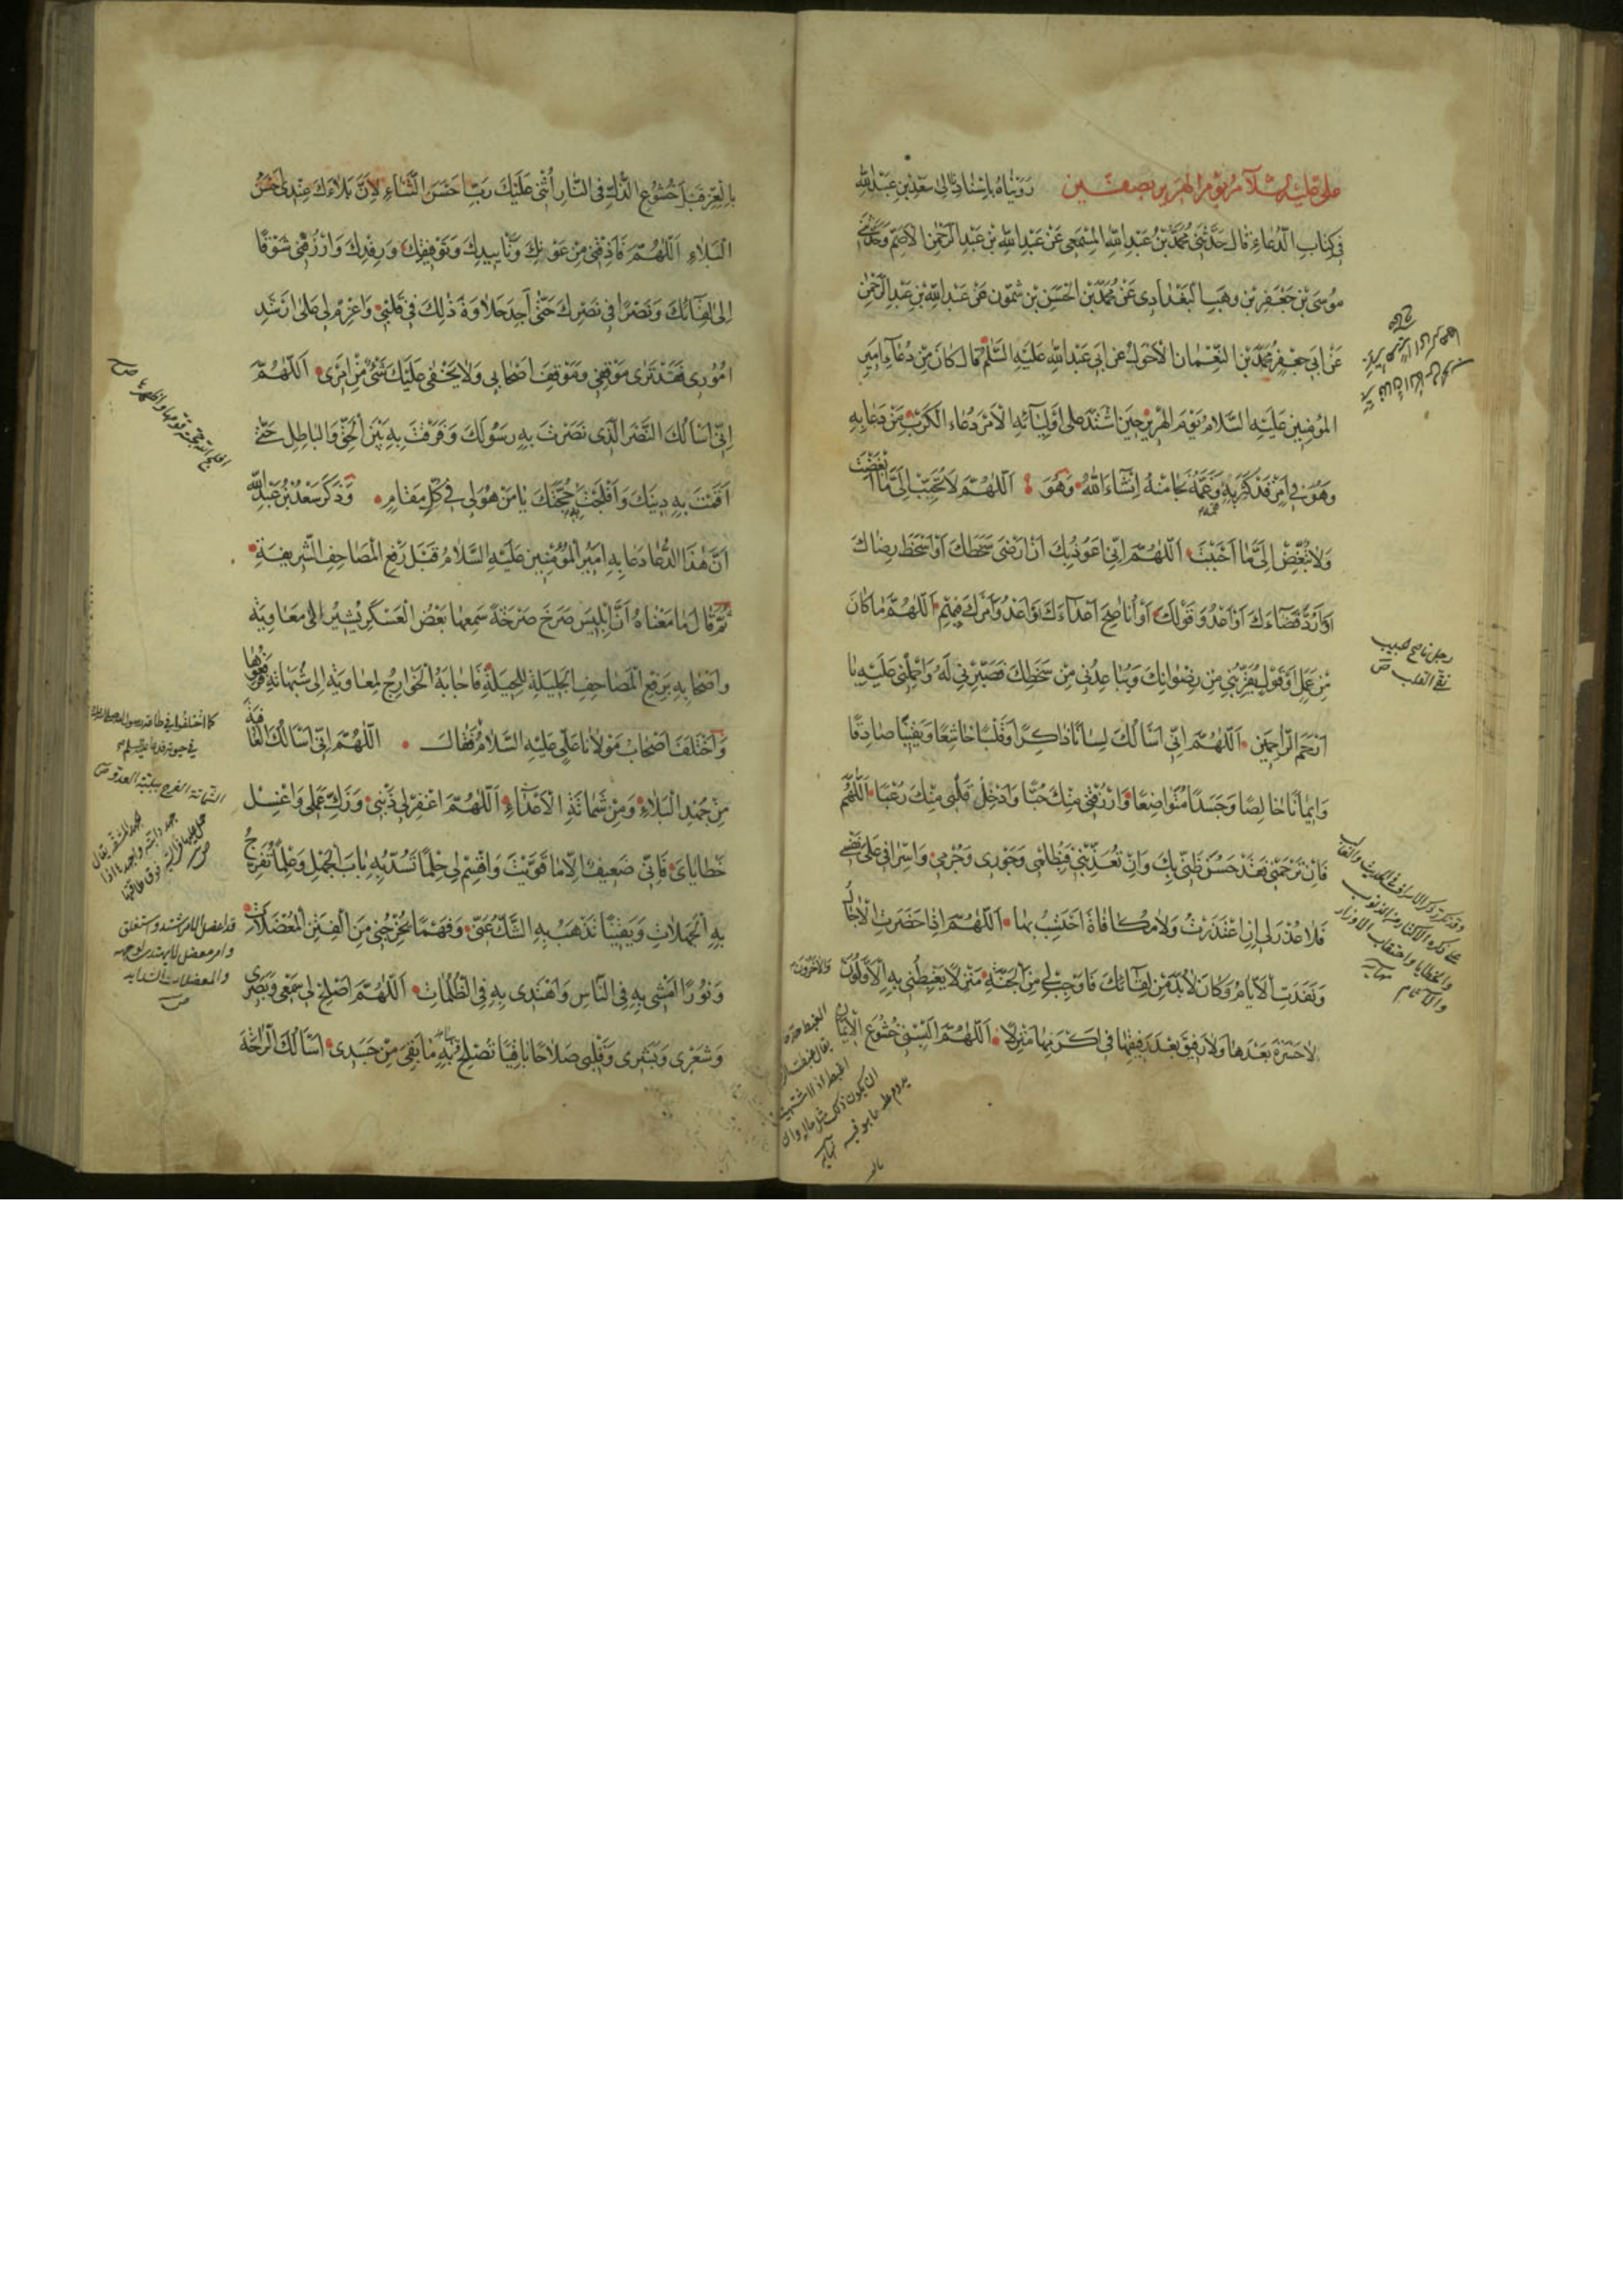 علي عليه السلام يوم الهرير بصفّين رَوَيْناهُ بِاِسْنادِنا اِلى سَعْدِ بْنِ عَبْدِ اللهِ
في كِتابِ الدُّعاءِ قالَ حَدَّثَني مُحَمَّدُ بْنُ عَبْدِ اللهِ المِسْمَعي عَنْ عَبْدِ اللهِ بْنِ عَبْدِ الرَّحْمٰنِ الاَصَمّ وَحَدَّثَني
مُوسَى بْنُ جَعْفَرِ بْنِ وَهَبِ البَغْدادي عَنْ مُحَمَّدِ بْنِ الحَسَنِ بْنِ شَمّون عَنْ عَبْدِ اللهِ بْنِ عَبْدِ الرَّحْمٰنِ
عَنْ اَبي جَعْفَرٍ مُحَمَّدِ بْنِ النُّعْمانِ الاَحْوَلِ عَنْ اَبي عَبْدِ اللهِ عَلَيْهِ السَّلَم قالَ كانَ مِنْ دُعاءِ اَميرِ
المُؤْمِنينَ عَلَيْهِ السَّلامُ يَوْمَ الهَريرِ حينَ اشْتَدَّ عَلى اَوْلِيائِهِ الاَمْرُ دُعاءُ الكَرْبِ مَنْ دَعا بِهِ
وَهُوَ في اَمْرٍ قَدْ كَرَبَهُ وَغَمَّهُ نَجّاهُ مِنْهُ اِنْشاءَ اللهُ وَهُوَ اَللّٰهُمَّ لا تُحَبِّبْ اِلَيَّ ما اَبْغَضْتَ
وَلا تُبَغِّضْ اِلَيَّ ما اَحْبَبْتَ اَللّٰهُمَّ اِنّي اَعُوذُ بِكَ اَنْ اَرْضى سَخَطَكَ اَوْ اَسْخَطَ رِضاكَ
اَوْ اَرُدَّ قَضاءَكَ اَوْ اَعْدُوَ قَوْلَكَ اَوْ اُناصِحَ اَعْداءَكَ اَوْ اَعْدُوَ اَمْرَكَ فيهِمْ اَللّٰهُمَّ ما كانَ
مِنْ عَمَلٍ اَوْ قَوْلٍ يُقَرِّبُني مِنْ رِضْوانِكَ وَيُباعِدُني مِنْ سَخَطِكَ فَصَبِّرْني لَهُ وَاحْمِلْني عَلَيْهِ يا
اَرْحَمَ الرّاحِمينَ اَللّٰهُمَّ اِنّي اَسْاَلُكَ لِسانًا ذاكِرًا وَقَلْبًا خاشِعًا وَيَقينًا صادِقًا
وَايمانًا خالِصًا وَجَسَدًا مُتَواضِعًا وَارْزُقْني مِنْكَ حُبًّا وَاَدْخِلْ قَلْبي مِنْكَ رُعْبًا اَللّٰهُمَّ
فَاِنْ تَرْحَمْني فَقَدْ حَسُنَ ظَنّي بِكَ وَاِنْ تُعَذِّبْني فَبِظُلْمي وَجَوْري وَجُرْمي وَاِسْرافي عَلى نَفْسي
فَلا عُذْرَ لي اِنِ اعْتَذَرْتُ وَلا مُكافاةَ اَحْتَسِبُ بِها اَللّٰهُمَّ اِذا حَضَرَتِ الاٰجالُ
وَنَفَدَتِ الاَيّامُ وَكانَ لا بُدَّ مِنْ لِقائِكَ فَاَوْجِبْ لي مِنَ الجَنَّةِ مَنْزِلًا يَغْبِطُني بِهِ الاَوَّلُونَ وَالاٰخِرُونَ
لا حَسْرَةَ بَعْدَها وَلا رَفيقَ بَعْدَ رَفيقِها في اَكْرَمِها مَنْزِلًا اَللّٰهُمَّ اَلْبِسْني خُشُوعَ الايمانِ
رجل ناصح الجيب
نقي القلب ص
وقد تكرر ذكر الاسراف في الحديث والغالب
على ذكره الاكثار من الذنوب
والخطايا واحتقاب الاوزار
والآثام نهايه
بِالعِزِّ قَبْلَ خُشُوعِ الذُّلِّ فِي النّارِ اُثْني عَلَيْكَ رَبِّ اَحْسَنَ الثَّناءِ لِاَنَّ بَلاءَكَ عِنْدي اَحْسَنُ
البَلاءِ اَللّٰهُمَّ فَاَذِقْني مِنْ عَوْنِكَ وَتَاْييدِكَ وَتَوْفيقِكَ وَرِفْدِكَ وَارْزُقْني شَوْقًا
اِلى لِقائِكَ وَنَصْرًا في نَصْرِكَ حَتّى اَجِدَ حَلاوَةَ ذٰلِكَ في قَلْبي وَاَعْزِمْ لي عَلى اَرْشَدِ
اُمُوري فَقَدْ تَرى مَوْقِفي وَمَوْقِفَ اَصْحابي وَلا يَخْفى عَلَيْكَ شَيْءٌ مِنْ اَمْري اَللّٰهُمَّ
اِنّي اَسْاَلُكَ النَّصْرَ الَّذي نَصَرْتَ بِهِ رَسُولَكَ وَفَرَّقْتَ بِهِ بَيْنَ الحَقِّ وَالباطِلِ حَتّى
اَقَمْتَ بِهِ دينَكَ وَاَفْلَجْتَ بِهِ حُجَّتَكَ يا مَنْ هُوَ لي في كُلِّ مَقامٍ وَذَكَرَ سَعْدُ بْنُ عَبْدِ اللهِ
اَنَّ هٰذَا الدُّعاءَ دَعا بِهِ اَميرُ المُؤْمِنينَ عَلَيْهِ السَّلامُ قَبْلَ رَفْعِ المَصاحِفِ الشَّريفَةِ
ثُمَّ قالَ ما مَعْناهُ اَنَّ اِبْليسَ صَرَخَ صَرْخَةً سَمِعَها بَعْضُ العَسْكَرِ يُشيرُ اِلى مَعاوِيَةَ
وَاَصْحابِهِ بِرَفْعِ المَصاحِفِ الجَليلَةِ لِلحيلَةِ فَاَجابَهُ الخَوارِجُ لِمَعاوِيَةَ اِلى شُبُهاتِهِ فَرَفَعُوها
وَاخْتَلَفَ اَصْحابُ مَوْلانا عَلِيٍّ عَلَيْهِ السَّلامُ فَقالَ اَللّٰهُمَّ اِنّي اَسْاَلُكَ العافِيَةَ
مِنْ جُهْدِ البَلاءِ وَمِنْ شَماتَةِ الاَعْداءِ اَللّٰهُمَّ اغْفِرْ لي ذَنْبي وَزَكِّ عَمَلي وَاغْسِلْ
خَطايايَ فَاِنّي ضَعيفٌ اِلّا ما قَوَّيْتَ وَاقْسِمْ لي حِلْمًا تَسُدُّ بِهِ بابَ الجَهْلِ وَعِلْمًا تُفَرِّجُ
بِهِ الجَهَلاتِ وَيَقينًا تُذْهِبُ بِهِ الشَّكَّ عَنّي وَفَهْمًا تُخْرِجُني مِنَ الفِتَنِ المُعْضِلاتِ
وَنُورًا اَمْشي بِهِ فِي النّاسِ وَاَهْتَدي بِهِ فِي الظُّلُماتِ اَللّٰهُمَّ اَصْلِحْ لي سَمْعي وَبَصَري
وَشَعْري وَبَشَري وَقَلْبي صَلاحًا باقِيًا تُصْلِحُ بِهِ ما بَقِيَ مِنْ جَسَدي اَسْاَلُكَ الرّاحَةَ
الشماتة الفرح ببلية العدو ص
قد اعضل الامر اشتد واستغلق
وامر معضل لا يهتدى لوجهه
والمعضلات الشدايد
ص